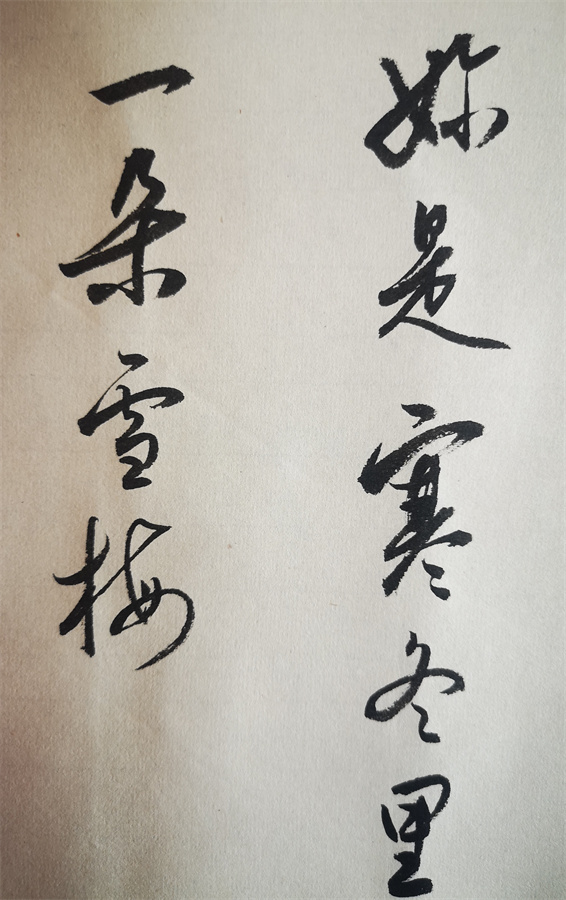 妳是寒冬里
一朵雪梅